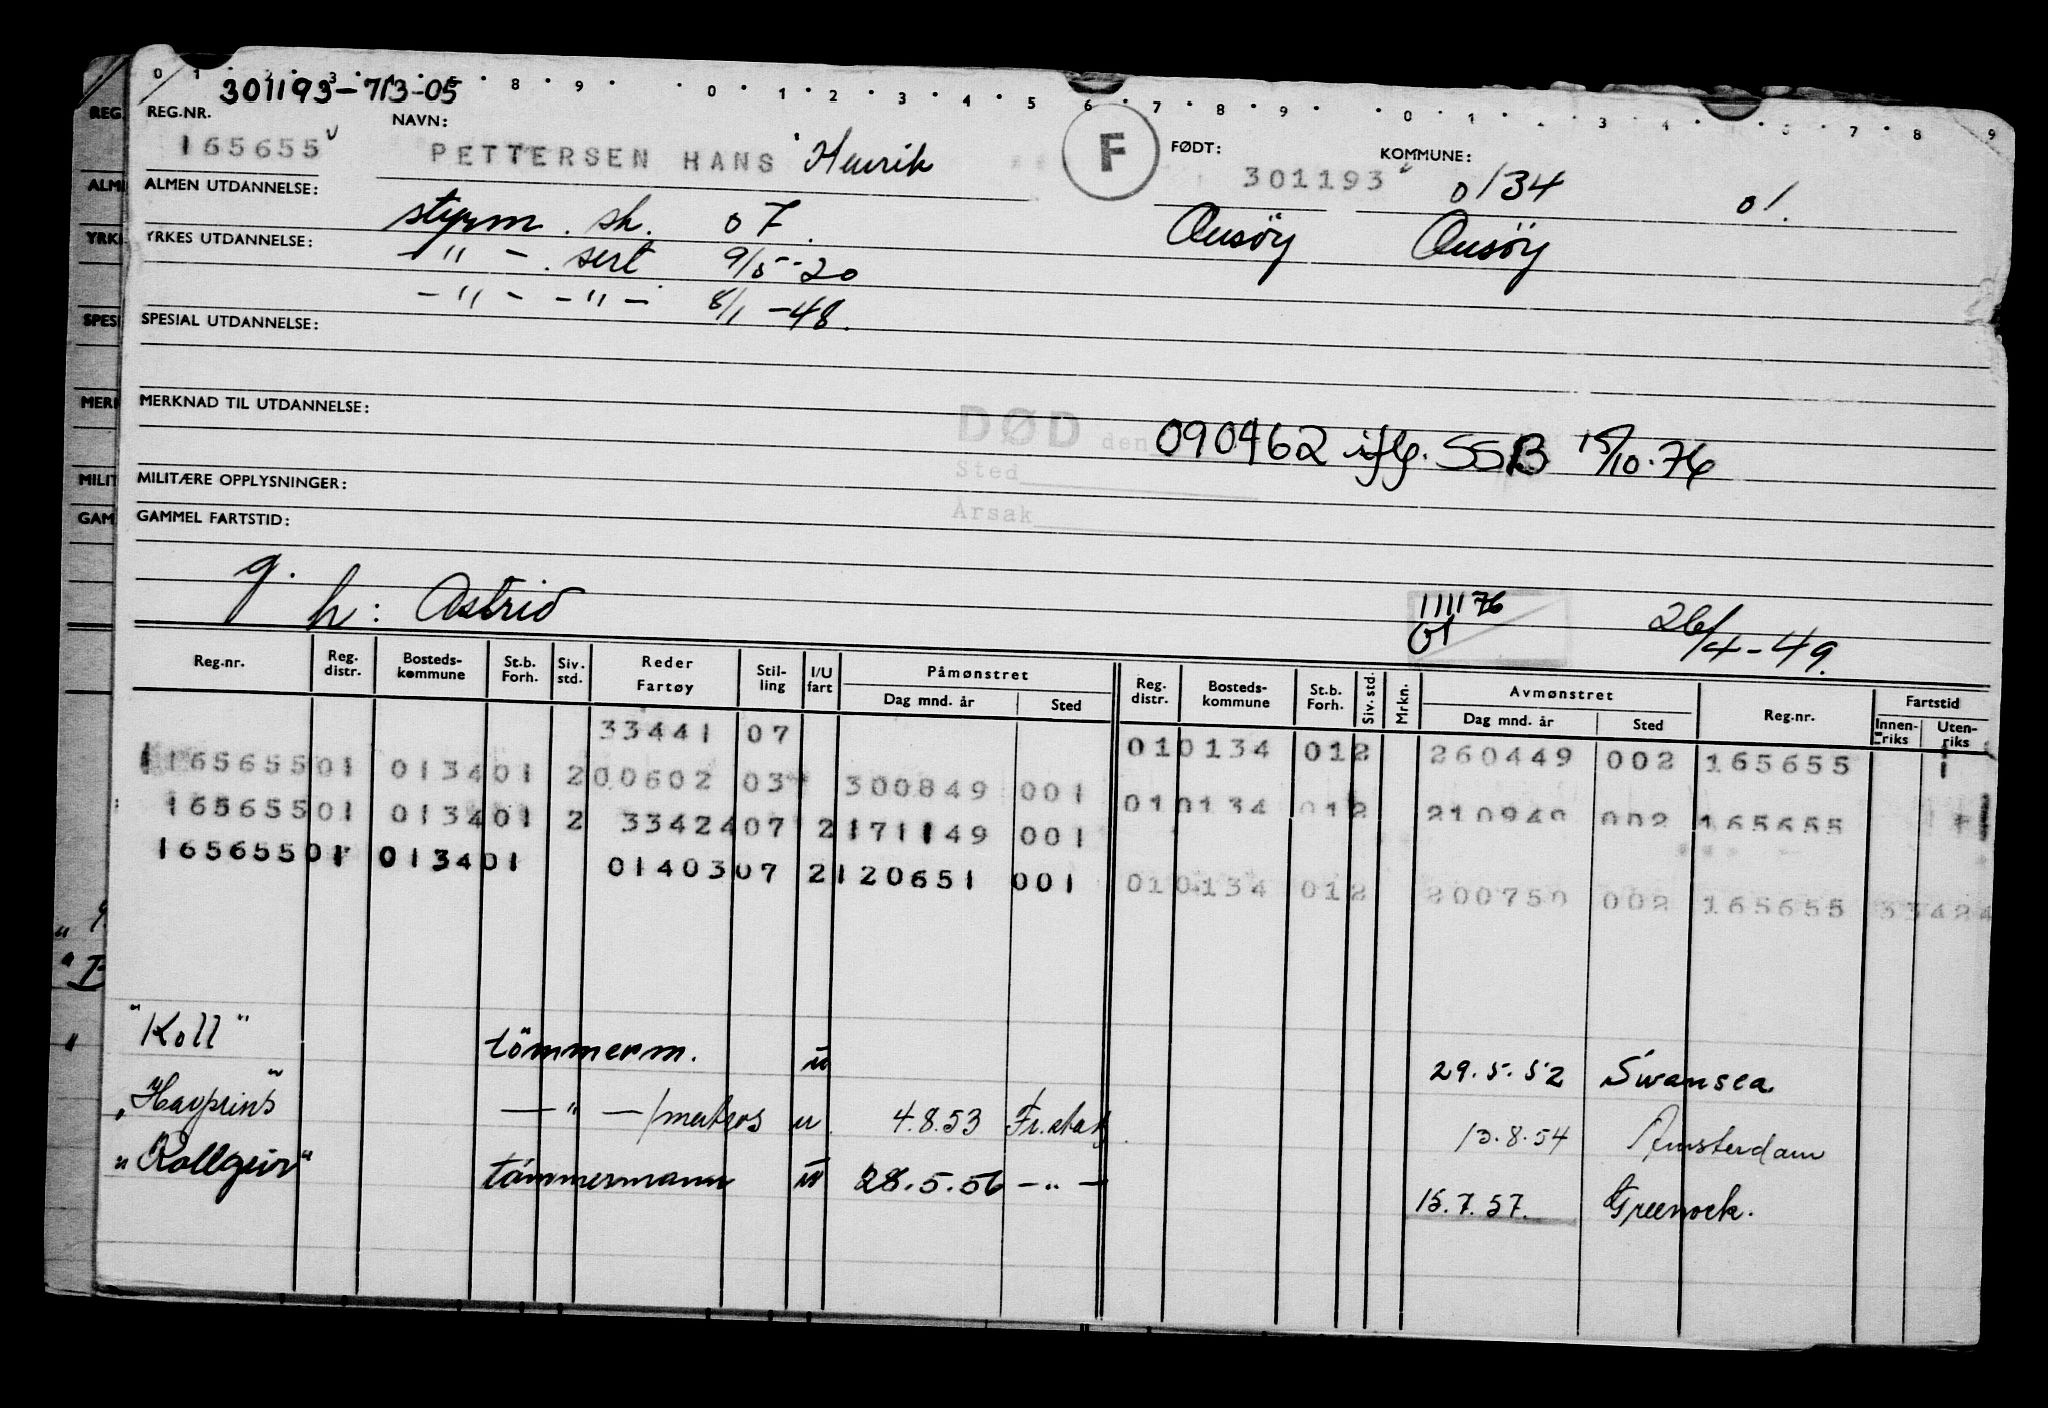 0 1 2 3 8 9 0 1 2 3 4 5 6 7 8 9 0 1 3 4 7 8 9
301193-713-05
REG.NR. NAVN: FØDT: KOMMUNE:
165655 PETTERSEN HANS Henrik F 301193 0134 01.
ALMEN UTDANNELSE:
styrm. sk. 07. Onsöy Onsöy
YRKES UTDANNELSE:
- " - . sert 9/5-20
- " - - " - 8/1-48.
SPESIAL UTDANNELSE:
MERKNAD TIL UTDANNELSE:
DØD den 090462 iflg. SSB 15/10.76
Sted
MILITÆRE OPPLYSNINGER:
Årsak
GAMMEL FARTSTID:
g.
h: Astrid 111176 26/4-49.
Reg.nr. Reg. distr. Bosteds-kommune St.b. Forh. Siv. std. Reder Fartøy Stil-ling I/U fart Påmønstret Dag mnd. år Sted Reg. distr. Bosteds-kommune St.b. Forh. Siv. std. Mrkn. Avmønstret Dag mnd. år Sted Reg.nr. Fartstid Innen-riks Uten-riks
33441 07 010134 012 260449 002 165655
165655 01 0134 01 2 00602 03 300849 001 010134 012 210949 002 165655
165655 01 0134 01 2 33424 07 2 171149 001
165655 01 0134 01 01403 07 2 120651 001 010134 012 200750 002 165655 33424
"Koll" tömmerm. u 29.5.52 Swansea
"Havprins" - " - /matros u. 4.8.53 Fr.stad 13.8.54 Amsterdam
"Kollgeir" tömmermann u 28.5.56 - " - 15.7.57. Greenock.